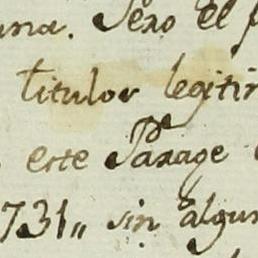 una. Pero el
titulos legiti
este Parage
731,, sin algu